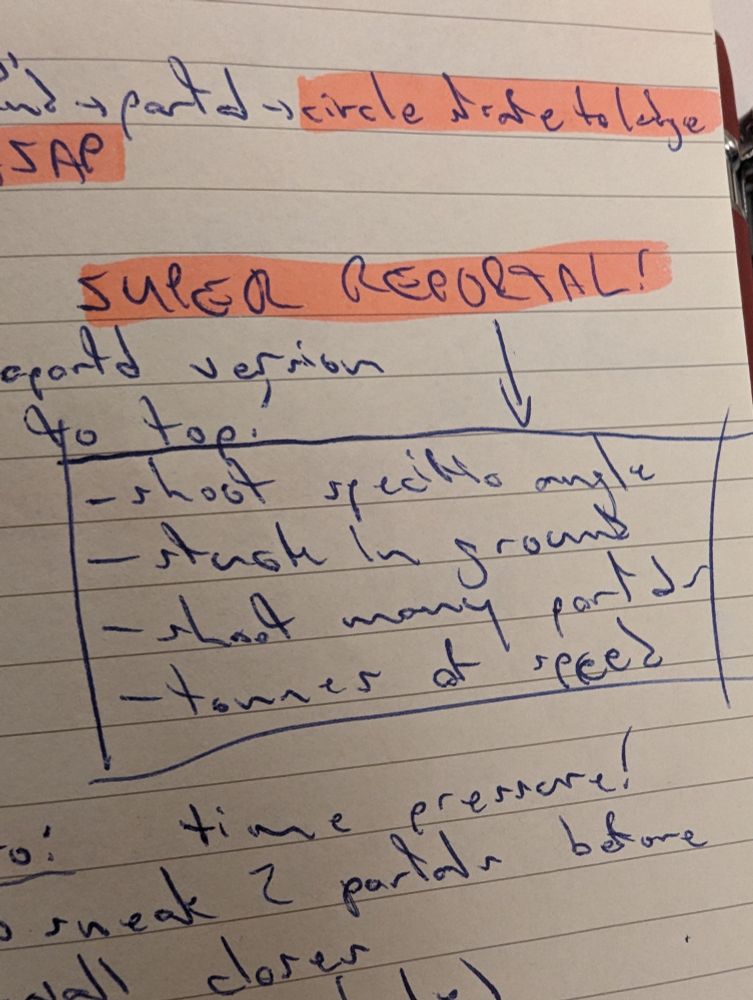 → portal → circle strafe to ledge
ASAP
SUPER REPORTAL!
reportal version
to top:
- shoot specific angle
- stuck in ground
- shoot many portals
- tonnes of speed
time pressure!
sneak 2 portals before
wall closes